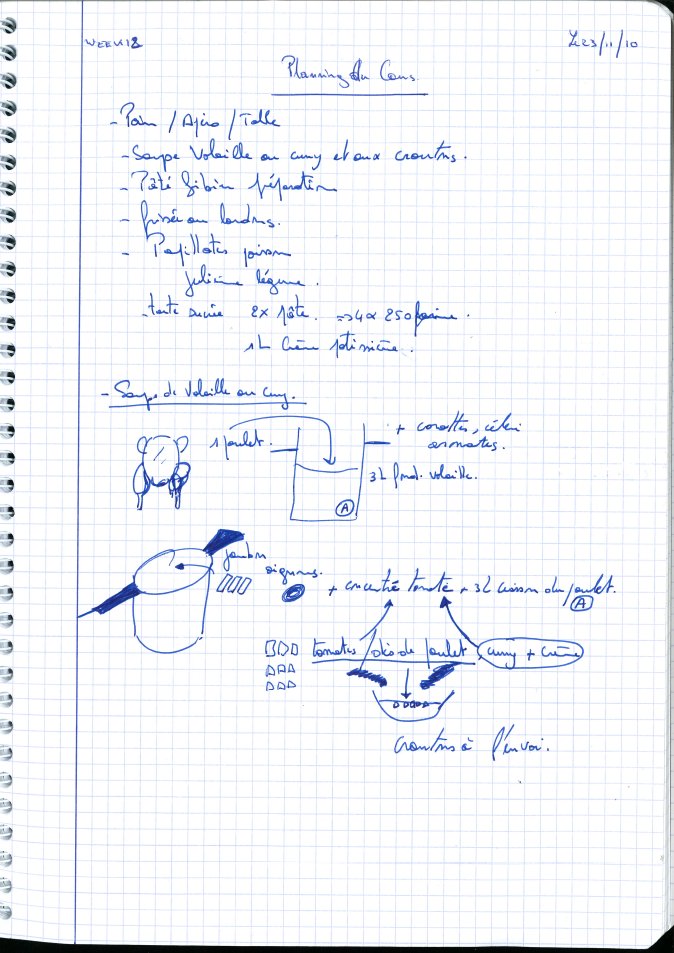 WEEK 12
Le 23/11/10
Planning du Cours.
- Pain / Apéro / Table
- Soupe Volaille au curry et aux croutons.
- Pâté Gibier préparation
- frisée au lardons.
- Papillotes poisson
julienne légume.
- tarte sucrée 2x pâte. => 4 x 250 farine.
1L Crème patissière.
- Soupe de Volaille au curry.
1 poulet.
+ carottes, céleri
aromates.
3L fond. volaille.
A
jambon
oignons.
+ concentré tomate + 3L cuisson du poulet.
A
tomates / dés de poulet
curry + crème
croutons à l'envoi.